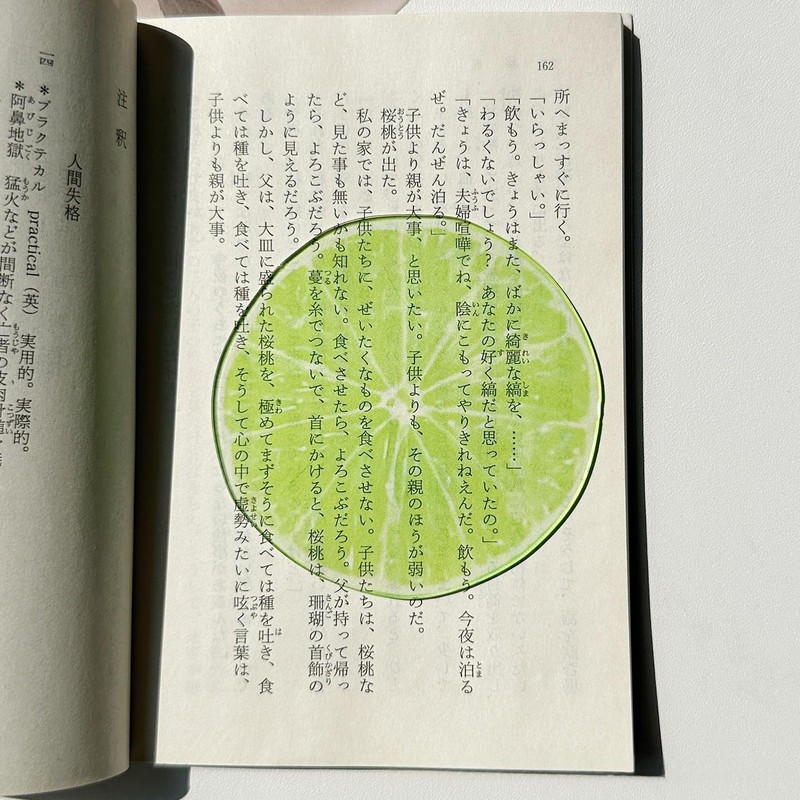 162
所へまっすぐに行く。
「いらっしゃい。」
「飲もう。きょうはまた、ばかに綺麗な縞を、……」
「わるくないでしょう？　あなたの好く縞だと思っていたの。」
「きょうは、夫婦喧嘩でね、陰にこもってやりきれねえんだ。飲もう。今夜は泊る
ぜ。だんぜん泊る。」
子供より親が大事、と思いたい。子供よりも、その親のほうが弱いのだ。
桜桃が出た。
私の家では、子供たちに、ぜいたくなものを食べさせない。子供たちは、桜桃な
ど、見た事も無いかも知れない。食べさせたら、よろこぶだろう。父が持って帰っ
たら、よろこぶだろう。蔓を糸でつないで、首にかけると、桜桃は、珊瑚の首飾の
ように見えるだろう。
しかし、父は、大皿に盛られた桜桃を、極めてまずそうに食べては種を吐き、食
べては種を吐き、食べては種を吐き、そうして心の中で虚勢みたいに呟く言葉は、
子供よりも親が大事。
注釈
人間失格
＊プラクテカル　practical（英）　実用的。実際的。
＊阿鼻地獄　猛火などが間断なく亡者の